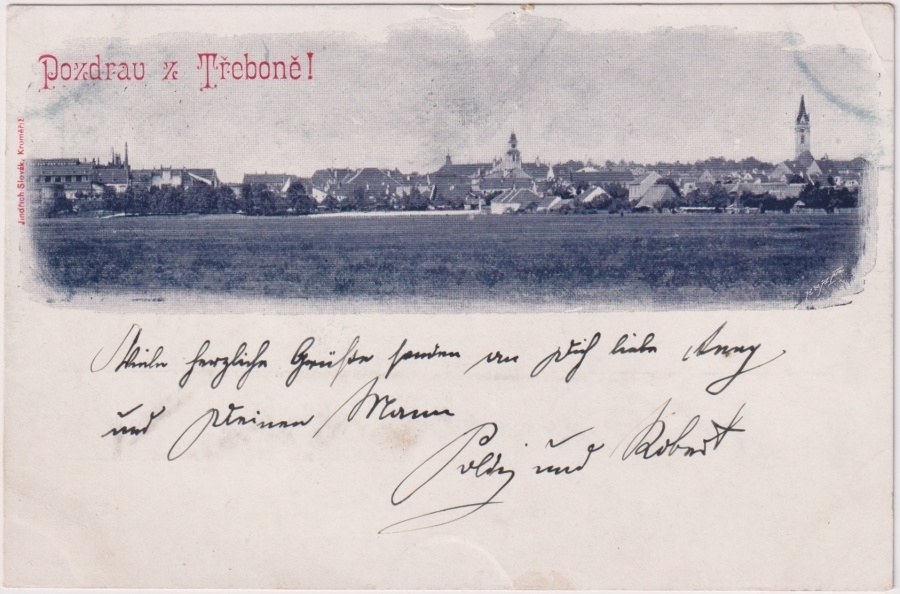 Pozdrav z Třeboně!
Jindřich Slovák, Kroměříž
Viele herzliche Grüße senden an Dich liebe Anny
und Deinen Mann
Poldy und Robert